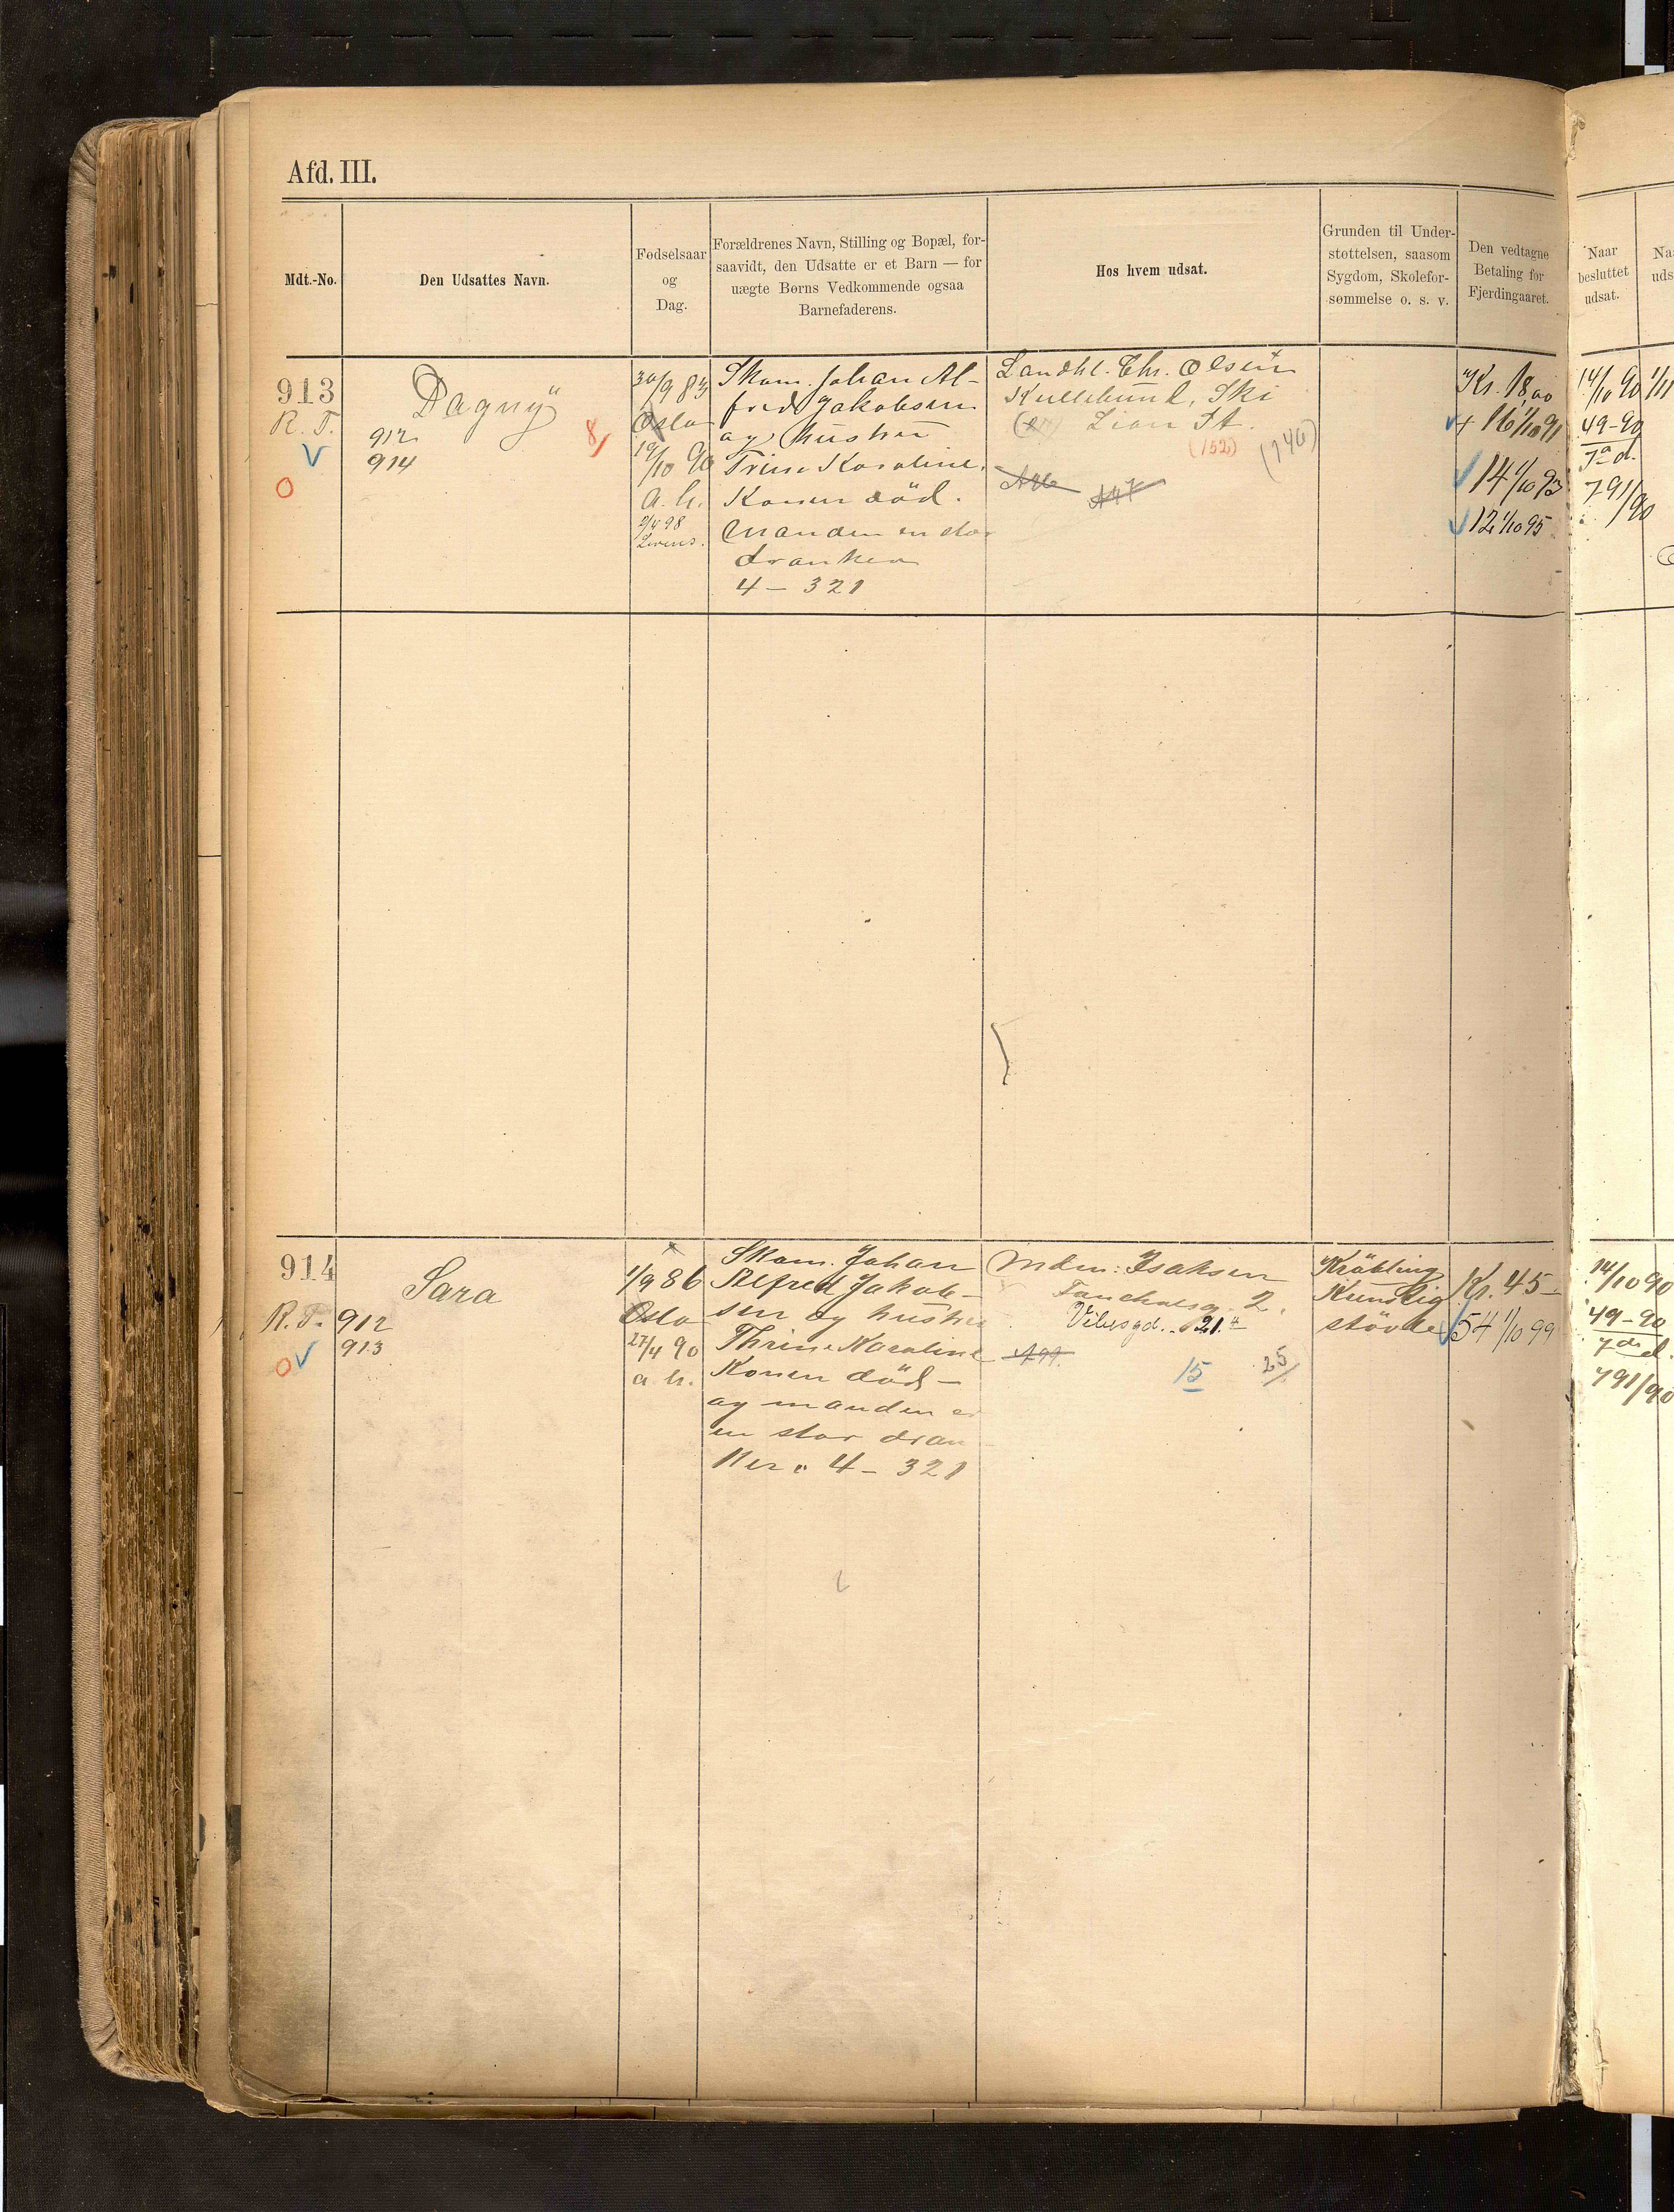 Afd. III.
Mdt.-No.
Den Udsattes Navn.
Fødselsaar
og
Dag.
Forældrenes Navn, Stilling og Bopæl, for-
saavidt, den Udsatte er et Barn — for
uægte Børns Vedkommende ogsaa
Barnefaderens.
Hos hvem udsat.
Grunden til Under-
støttelsen, saasom
Sygdom, Skolefor-
sømmelse o. s. v.
Den vedtagne
Betaling for
Fjerdingaaret.
Naar
besluttet
udsat.
Na
uds
913
R. T.
V
O
Dagny
912
914
8/
30/9 83
Oslo
19/10 90
a. h.
2/4 98
Skom. Johan Al-
fred Jakobsen
og hustru
Trine Karoline.
Konen död.
Manden en stor
dranker
4 - 321
Landhl. Chr. Olsen
Kullebund, Ski
Lian St.
(152)
(146)
Kr. 18,00
+ 16 1/10 91
14 1/10 93
12 1/10 95
14/10 90
49-90
7a d.
791/90
1/11
914
R. T. 912
913
O V
Sara
1/9 86
Oslo
27/4 90
a. h.
Skom. Johan
Alfred Jakob-
sen og hustru
Thrine Karoline
Konen död -
og manden er
en stor dran
ker. 4 - 321
Mdm: Isaksen
2.
Vibesgd. 21.4
15
25/
Kröbling
Kunstig
stövle
Kr. 45-
54 1/10 99
14/10 90
49-90
7de d.
791/90